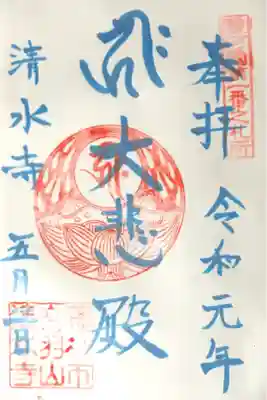 奉拝 令和元年
大悲殿
清水寺 五月日
一番之札所